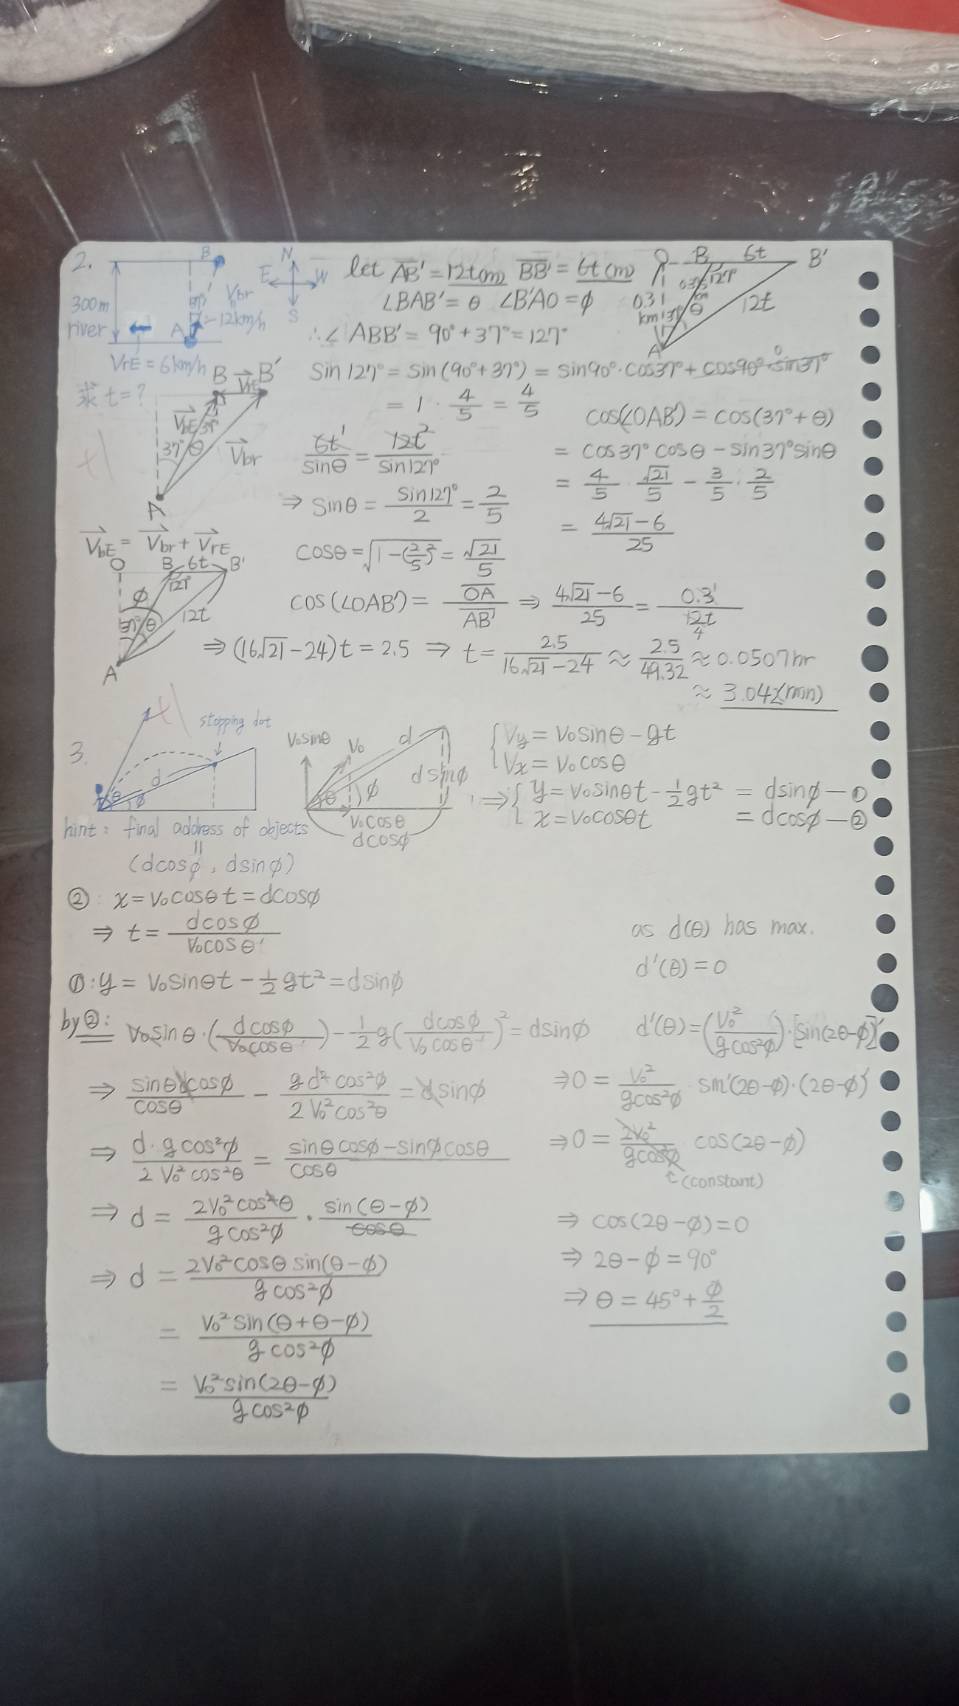 2.
B
N
E W
S
300m
river
A
Vbr
= 12km/h
VrE = 6km/h
求 t = ?
let AB' = 12t(m) BB' = 6t(m)
∠BAB' = θ ∠B'AO = φ
∴∠ABB' = 90° + 37° = 127°
O B 6t B'
127°
0.31
km
37° θ
12t
A
B → B'
VrE
VbE 37°
37° θ Vbr
A
VbE = Vbr + VrE
O B 6t B'
φ 127°
37° θ 12t
A
sin127° = sin(90°+37°) = sin90°·cos37° + cos90°·sin37°
= 1 · 4/5 = 4/5
6t/sinθ = 12t/sin127°
⇒ sinθ = sin127°/2 = 2/5
cosθ = √(1-(2/5)²) = √21/5
cos(∠OAB') = cos(37°+θ)
= cos37°cosθ - sin37°sinθ
= 4/5 · √21/5 - 3/5 · 2/5
= (4√21-6)/25
cos(∠OAB') = OA/AB' ⇒ (4√21-6)/25 = 0.3/12t
⇒ (16√21-24)t = 2.5 ⇒ t = 2.5/(16√21-24) ≈ 2.5/49.32 ≈ 0.0507hr
≈ 3.042(min)
3.
stopping dot
d
θ φ
hint: final address of objects
(dcosφ, dsinφ)
V₀sinθ V₀ d
dsinφ
θ φ
V₀cosθ
dcosφ
{Vy = V₀sinθ - gt
Vx = V₀cosθ
⇒ {y = V₀sinθt - ½gt² = dsinφ —①
x = V₀cosθt = dcosφ —②
②: x = V₀cosθt = dcosφ
⇒ t = dcosφ/V₀cosθ
①: y = V₀sinθt - ½gt² = dsinφ
by②: V₀sinθ·(dcosφ/V₀cosθ) - ½g(dcosφ/V₀cosθ)² = dsinφ
⇒ sinθdcosφ/cosθ - gd²cos²φ/2V₀²cos²θ = dsinφ
⇒ d·gcos²φ/2V₀²cos²θ = (sinθcosφ-sinφcosθ)/cosθ
⇒ d = 2V₀²cos²θ/gcos²φ · sin(θ-φ)/cosθ
⇒ d = 2V₀²cosθsin(θ-φ)/gcos²φ
= V₀²sin(θ+θ-φ)/gcos²φ
= V₀²sin(2θ-φ)/gcos²φ
as d(θ) has max.
d'(θ) = 0
d'(θ) = (V₀²/gcos²φ)·[sin(2θ-φ)]'
⇒ 0 = V₀²/gcos²φ sin'(2θ-φ)·(2θ-φ)'
⇒ 0 = 2V₀²/gcos²φ cos(2θ-φ)
c(constant)
⇒ cos(2θ-φ) = 0
⇒ 2θ-φ = 90°
⇒ θ = 45° + φ/2